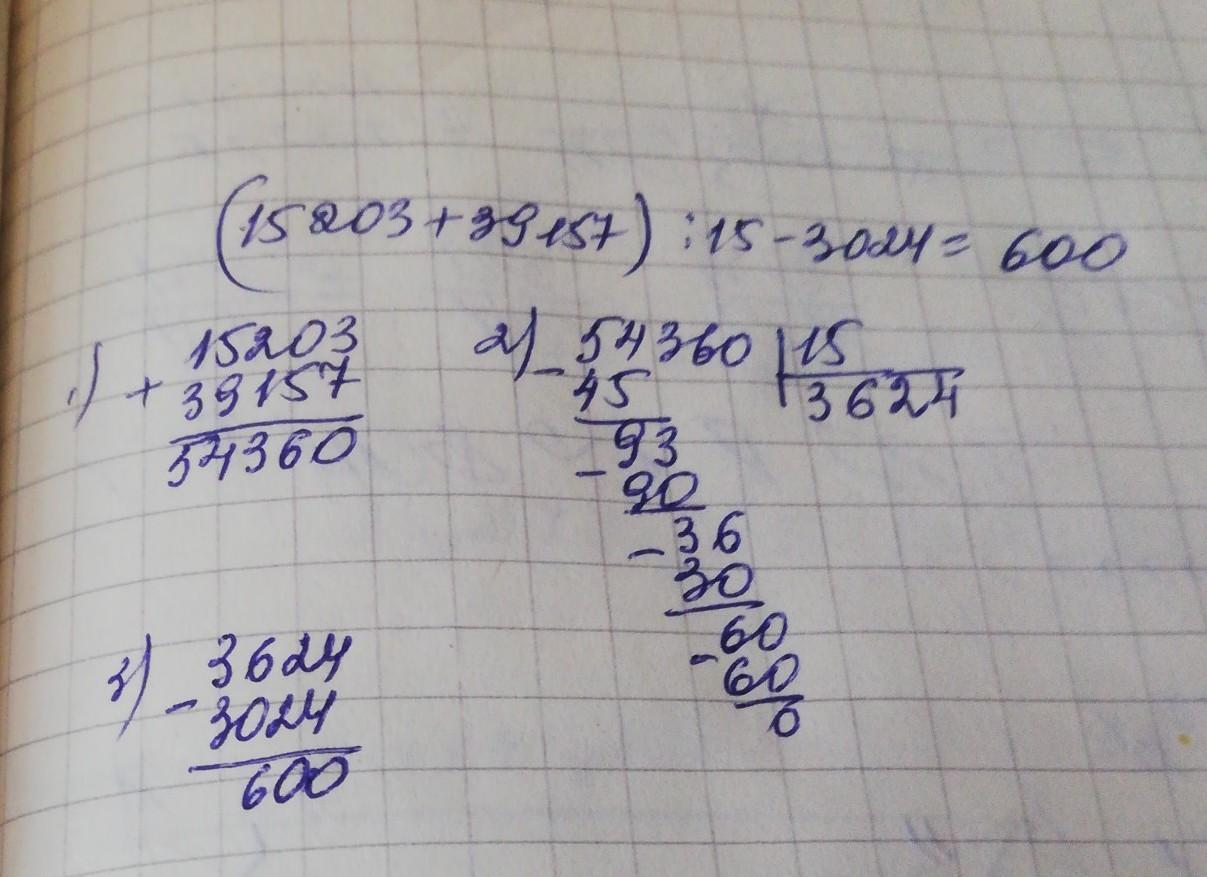 (15203+39157):15-3024=600
1) + 15203
39157
54360
2) - 54360 | 15
45 3624
93
- 90
- 36
30
60
- 60
0
3) - 3624
3024
600